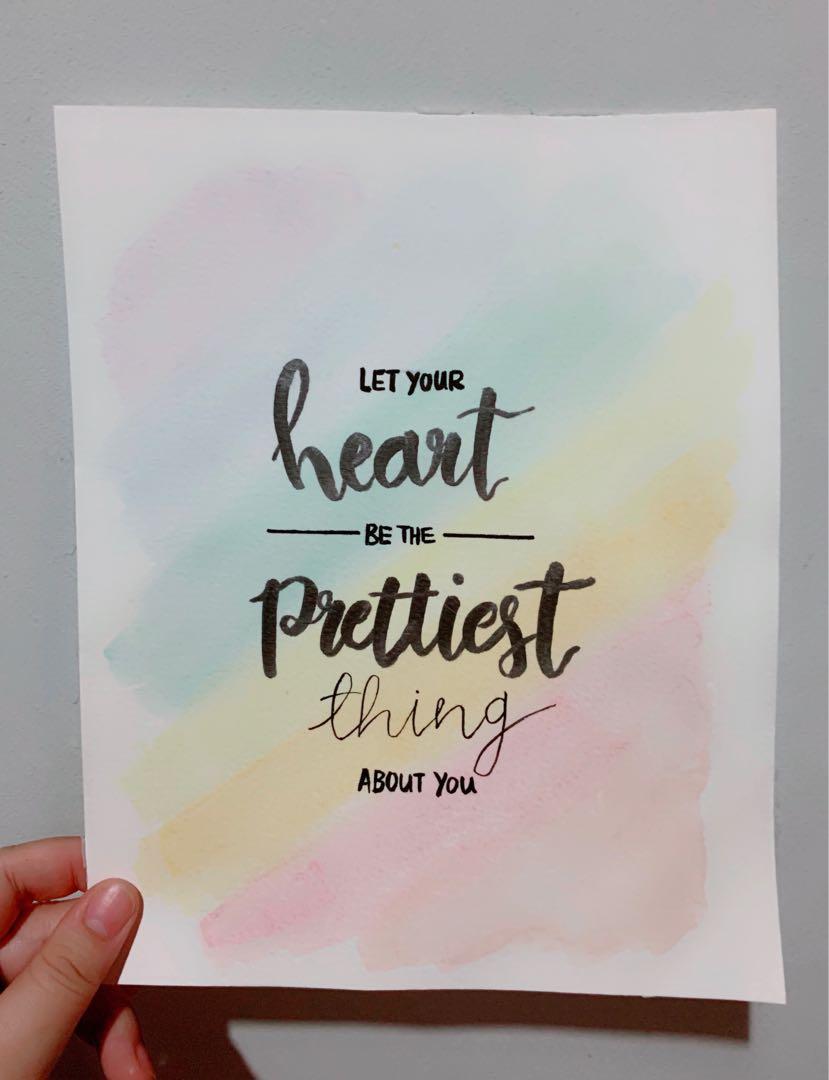 LET YOUR
heart
BE THE
Prettiest
thing
ABOUT YOU